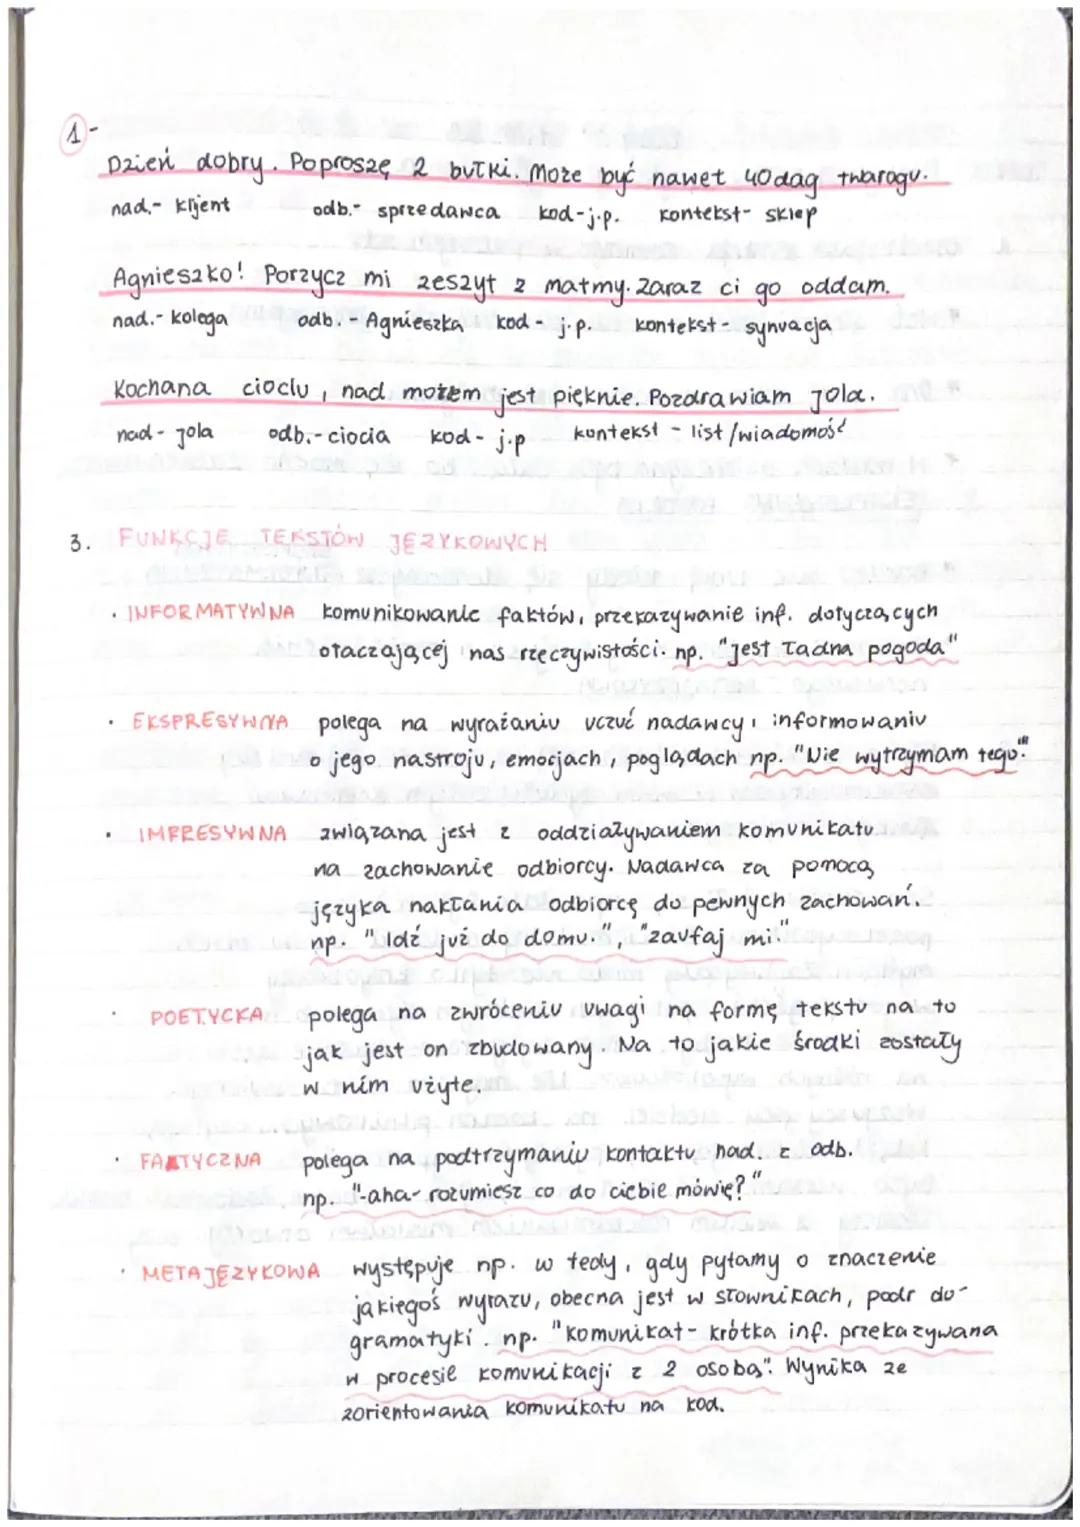 1-
Dzień dobry. Poproszę 2 bułki. Może być nawet 40dag twarogu.
nad.- klient odb.- sprzedawca kod-j.p. kontekst- sklep
Agnieszko! Porzycz mi zeszyt z matmy. Zaraz ci go oddam.
nad.- kolega odb.- Agnieszka kod- j.p. kontekst- sytuacja
Kochana cioclu, nad morzem jest pięknie. Pozdrawiam Jola.
nad- Jola odb.- ciocia kod- j.p kontekst - list/wiadomość
3. FUNKCJE TEKSTÓW JĘZYKOWYCH
· INFORMATYWNA komunikowanie faktów, przekazywanie inf. dotyczących
otaczającej nas rzeczywistości. np. "jest ładna pogoda"
· EKSPRESYWNA polega na wyrażaniu uczuć nadawcy, informowaniu
o jego nastroju, emocjach, poglądach np. "Nie wytrzymam tego!"
· IMPRESYWNA związana jest z oddziaływaniem komunikatu
na zachowanie odbiorcy. Nadawca za pomocą
języka nakłania odbiorcę do pewnych zachowań.
np. "Idź już do domu.", "zaufaj mi."
· POETYCKA polega na zwróceniu uwagi na formę tekstu na to
jak jest on zbudowany. Na to jakie środki zostały
w nim użyte.
· FATYCZNA polega na podtrzymaniu kontaktu nad. z odb.
np. "-aha- rozumiesz co do ciebie mówię?"
· METAJĘZYKOWA występuje np. w tedy, gdy pytamy o znaczenie
jakiegoś wyrazu, obecna jest w słownikach, podr do-
gramatyki. np. "komunikat- krótka inf. przekazywana
w procesie komunikacji z 2 osobą". Wynika ze
zorientowania komunikatu na kod.